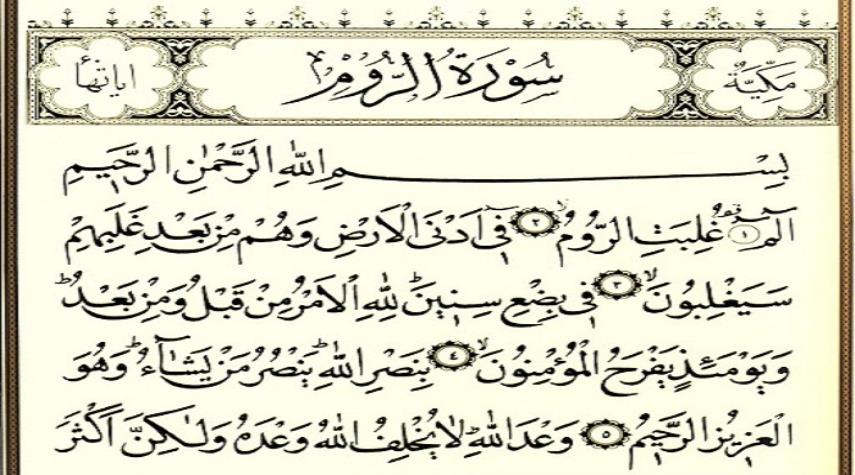 مَكِّيَّةٌ سُورَةُ الرُّومِ اٰيَاتُهَا
بِسْمِ اللهِ الرَّحْمٰنِ الرَّحِيمِ
الٓمٓ ﴿١﴾ غُلِبَتِ الرُّومُۙ ﴿٢﴾ فٖٓى اَدْنَى الْاَرْضِ وَهُمْ مِنْ بَعْدِ غَلَبِهِمْ
سَيَغْلِبُونَۙ ﴿٣﴾ فٖى بِضْعِ سِنٖينَۜ لِلّٰهِ الْاَمْرُ مِنْ قَبْلُ وَمِنْ بَعْدُۜ
وَيَوْمَئِذٍ يَفْرَحُ الْمُؤْمِنُونَۙ ﴿٤﴾ بِنَصْرِ اللّٰهِۜ يَنْصُرُ مَنْ يَشَٓاءُۜ وَهُوَ
الْعَزٖيزُ الرَّحٖيمُۙ ﴿٥﴾ وَعْدَ اللّٰهِۜ لَا يُخْلِفُ اللّٰهُ وَعْدَهُ وَلٰكِنَّ اَكْثَرَ